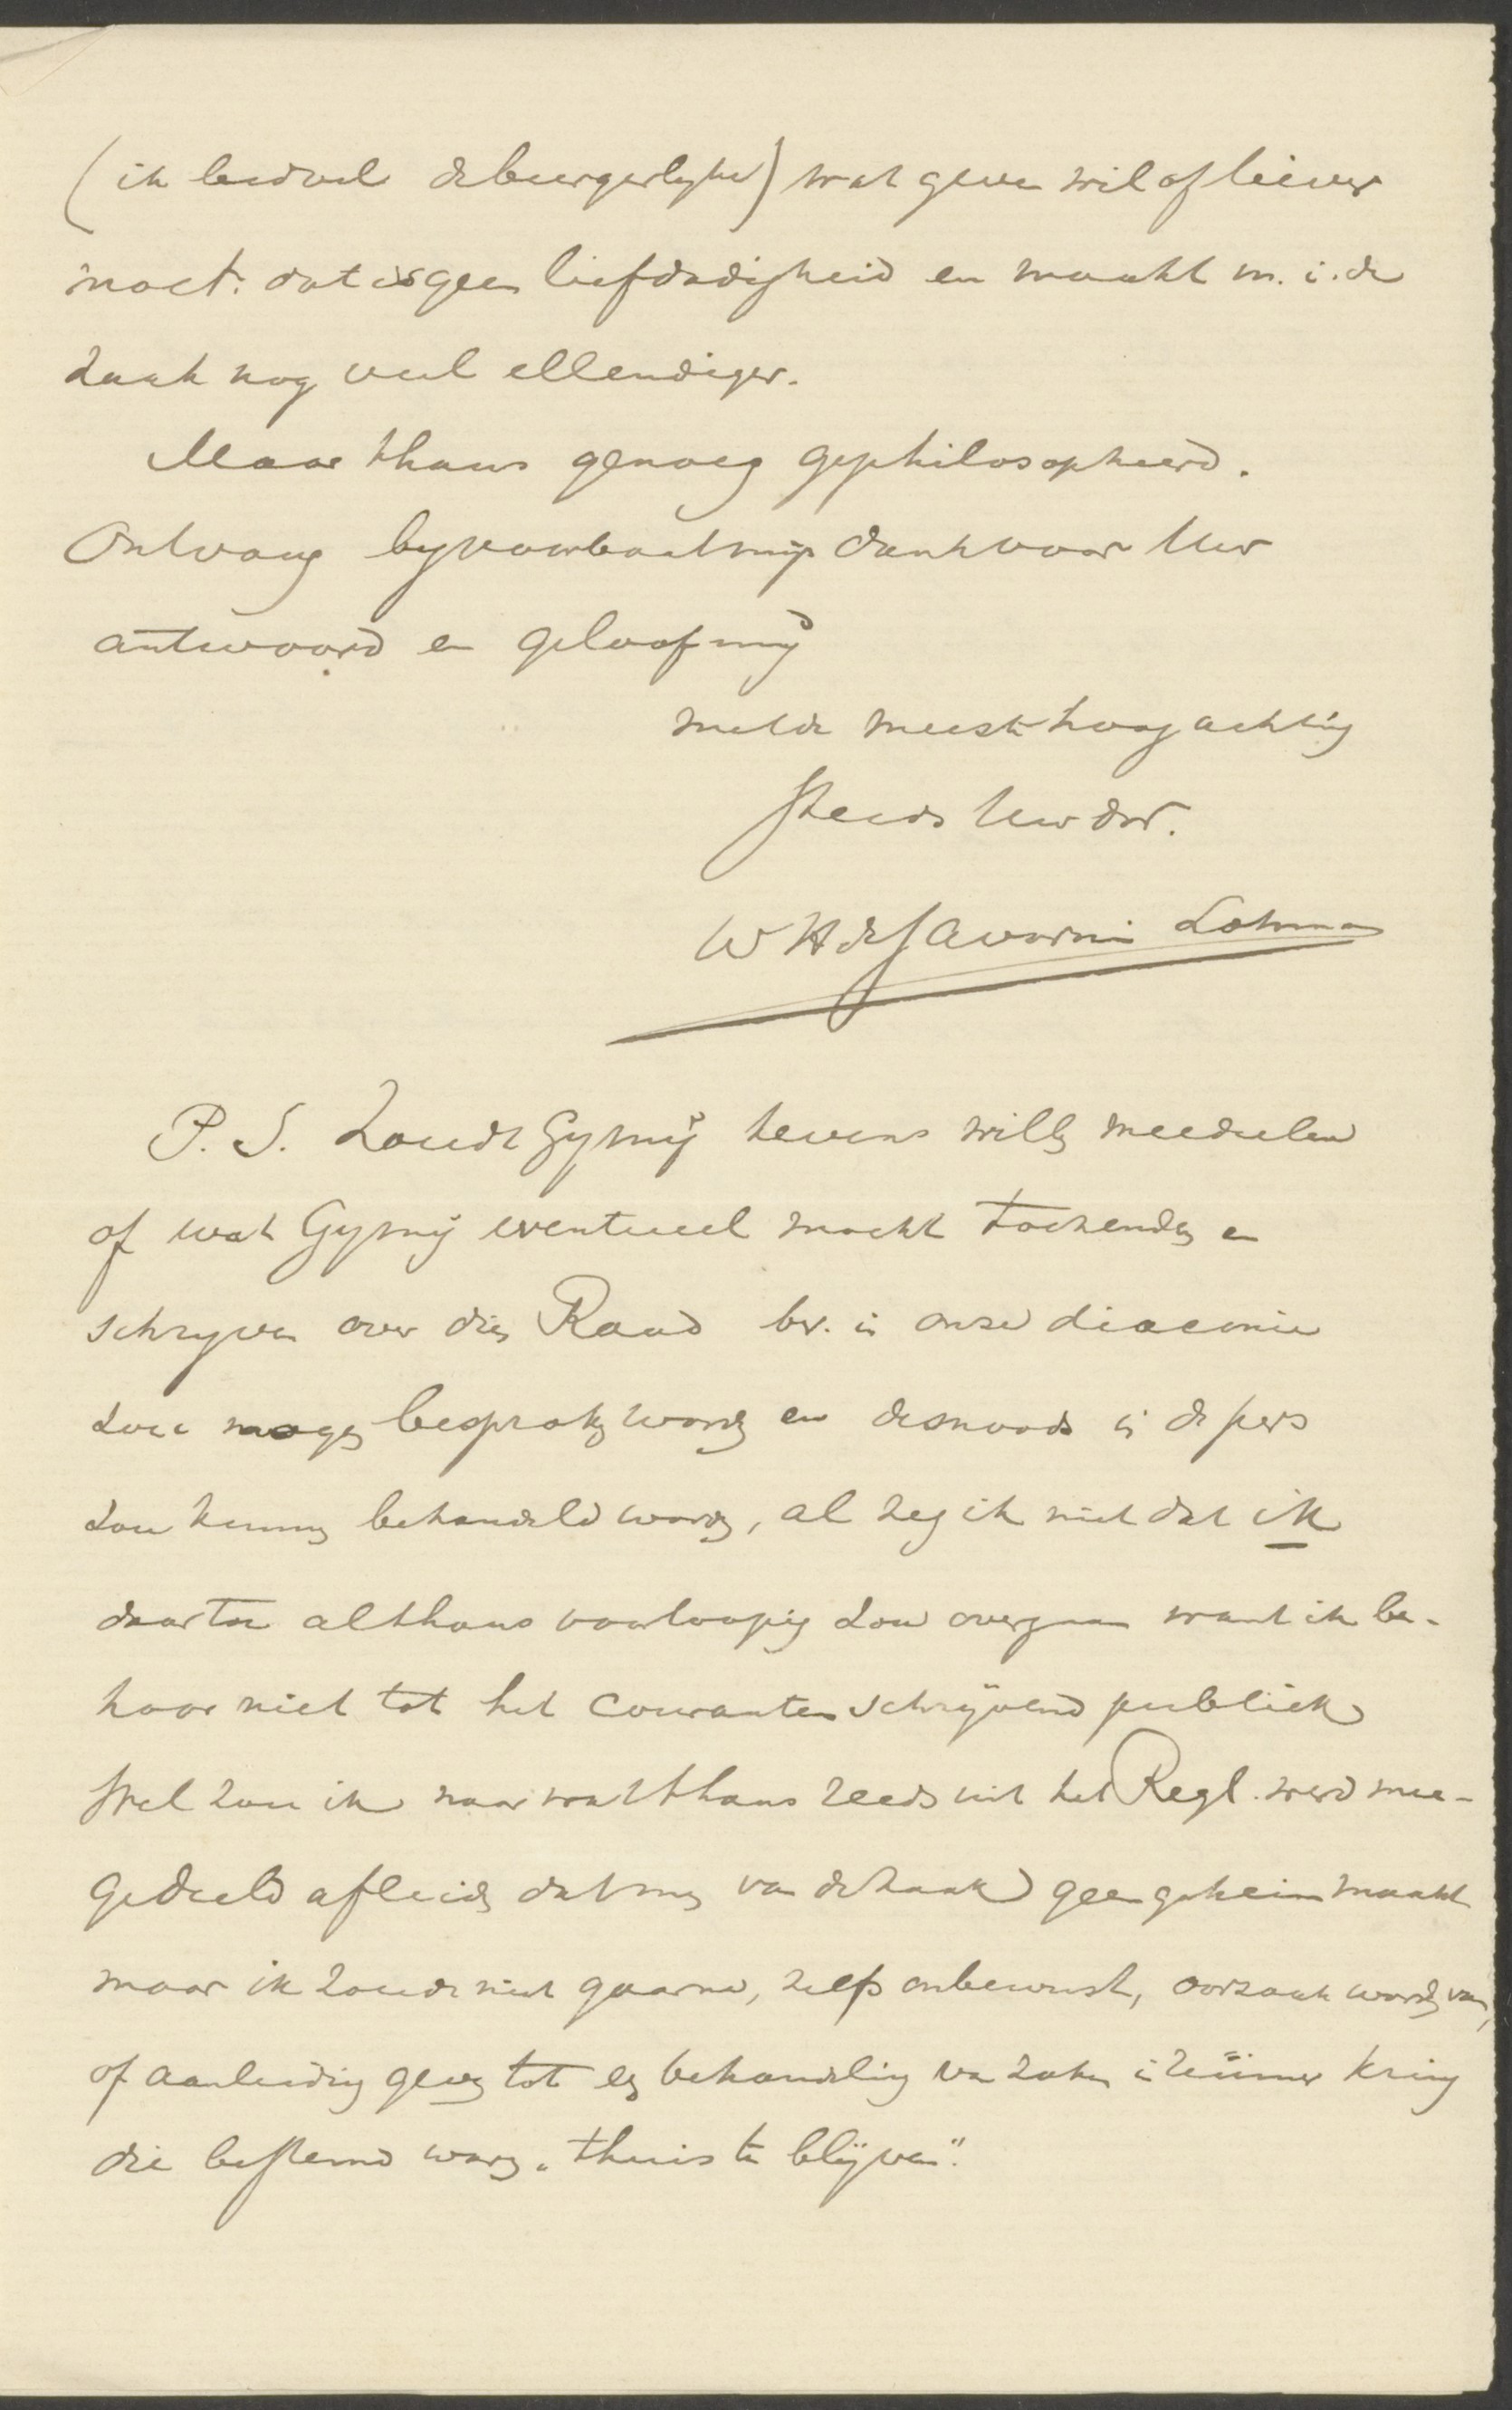 (ik bedoel de burgerlyke) wat geven wil of liever
moet: dat is geen liefdadigheid en maakt m. i. de
zaak nog veel ellendiger.
Maar thans genoeg gephilosopheerd.
Ontvang by voorbaat mijn dank voor Uw
antwoord en geloof mij
met de meeste hoogachting
steeds Uw dw.
W H de Savornin Lohman
P. S. Zoudt Gy mij tevens willen meedeelen
of wat Gy mij eventueel mocht toezenden en
schryven over dien Raad bv. in onze diaconie
zou mogen besproken worden en desnoods in de pers
zou kunnen behandeld worden, al zeg ik niet dat ik
daartoe althans voorloopig zou overgaan want ik be-
hoor niet tot het couranten schrijvend publiek
Wel zou ik naar wat thans reeds uit het Regl. werd mee-
gedeeld afleiden dat men van de zaak geen geheim maakt
maar ik zoude niet gaarne, zelfs onbewust, oorzaak worden van,
of aanleiding geven tot een behandeling van zaken in ruimer kring
die bestemd waren „thuis te blijven".